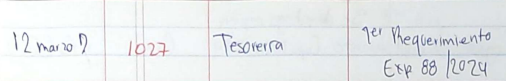 12 marzo 1027 Tesorería 1er Requerimiento
Exp 88/2024